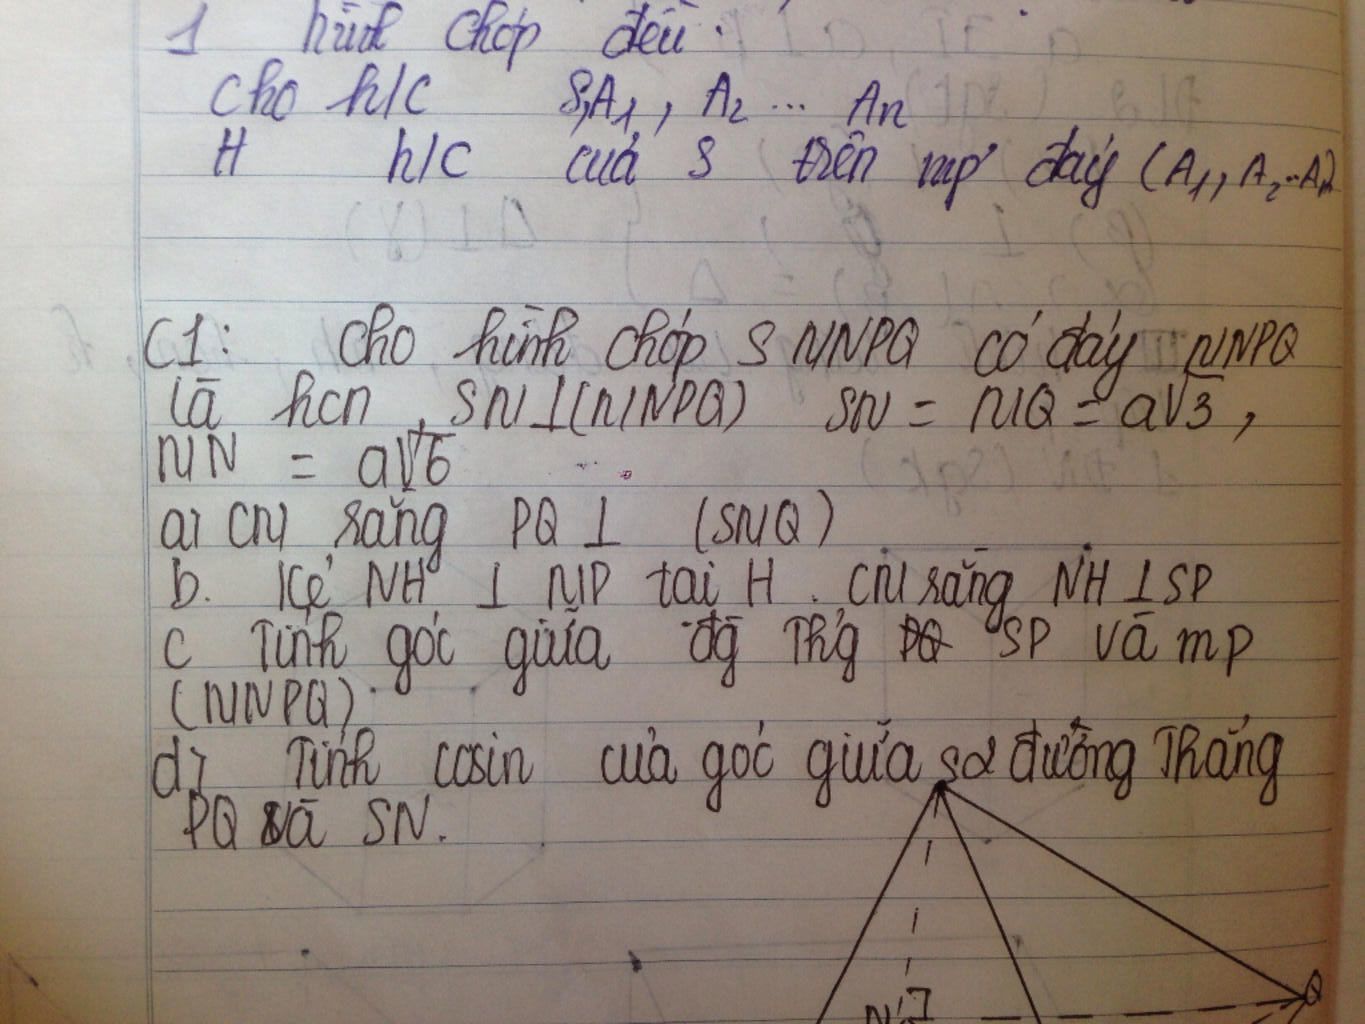 1 hình chóp đều.
Cho h/c S,A1, A2 ... An
H h/c của S trên mp đáy (A1, A2..An)
C1: Cho hình chóp S MNPQ có đáy MNPQ
là hcn, SM⊥(MNPQ) SM = MQ = a√3,
MN = a√6
a) CM rằng PQ ⊥ (SMQ)
b. Kẻ NH ⊥ MP tại H. CM rằng NH ⊥ SP
c Tính góc giữa đg thg SP và mp
(MNPQ).
d) Tính cosin của góc giữa 2 đường thẳng
PQ và SN.
S
M
Q